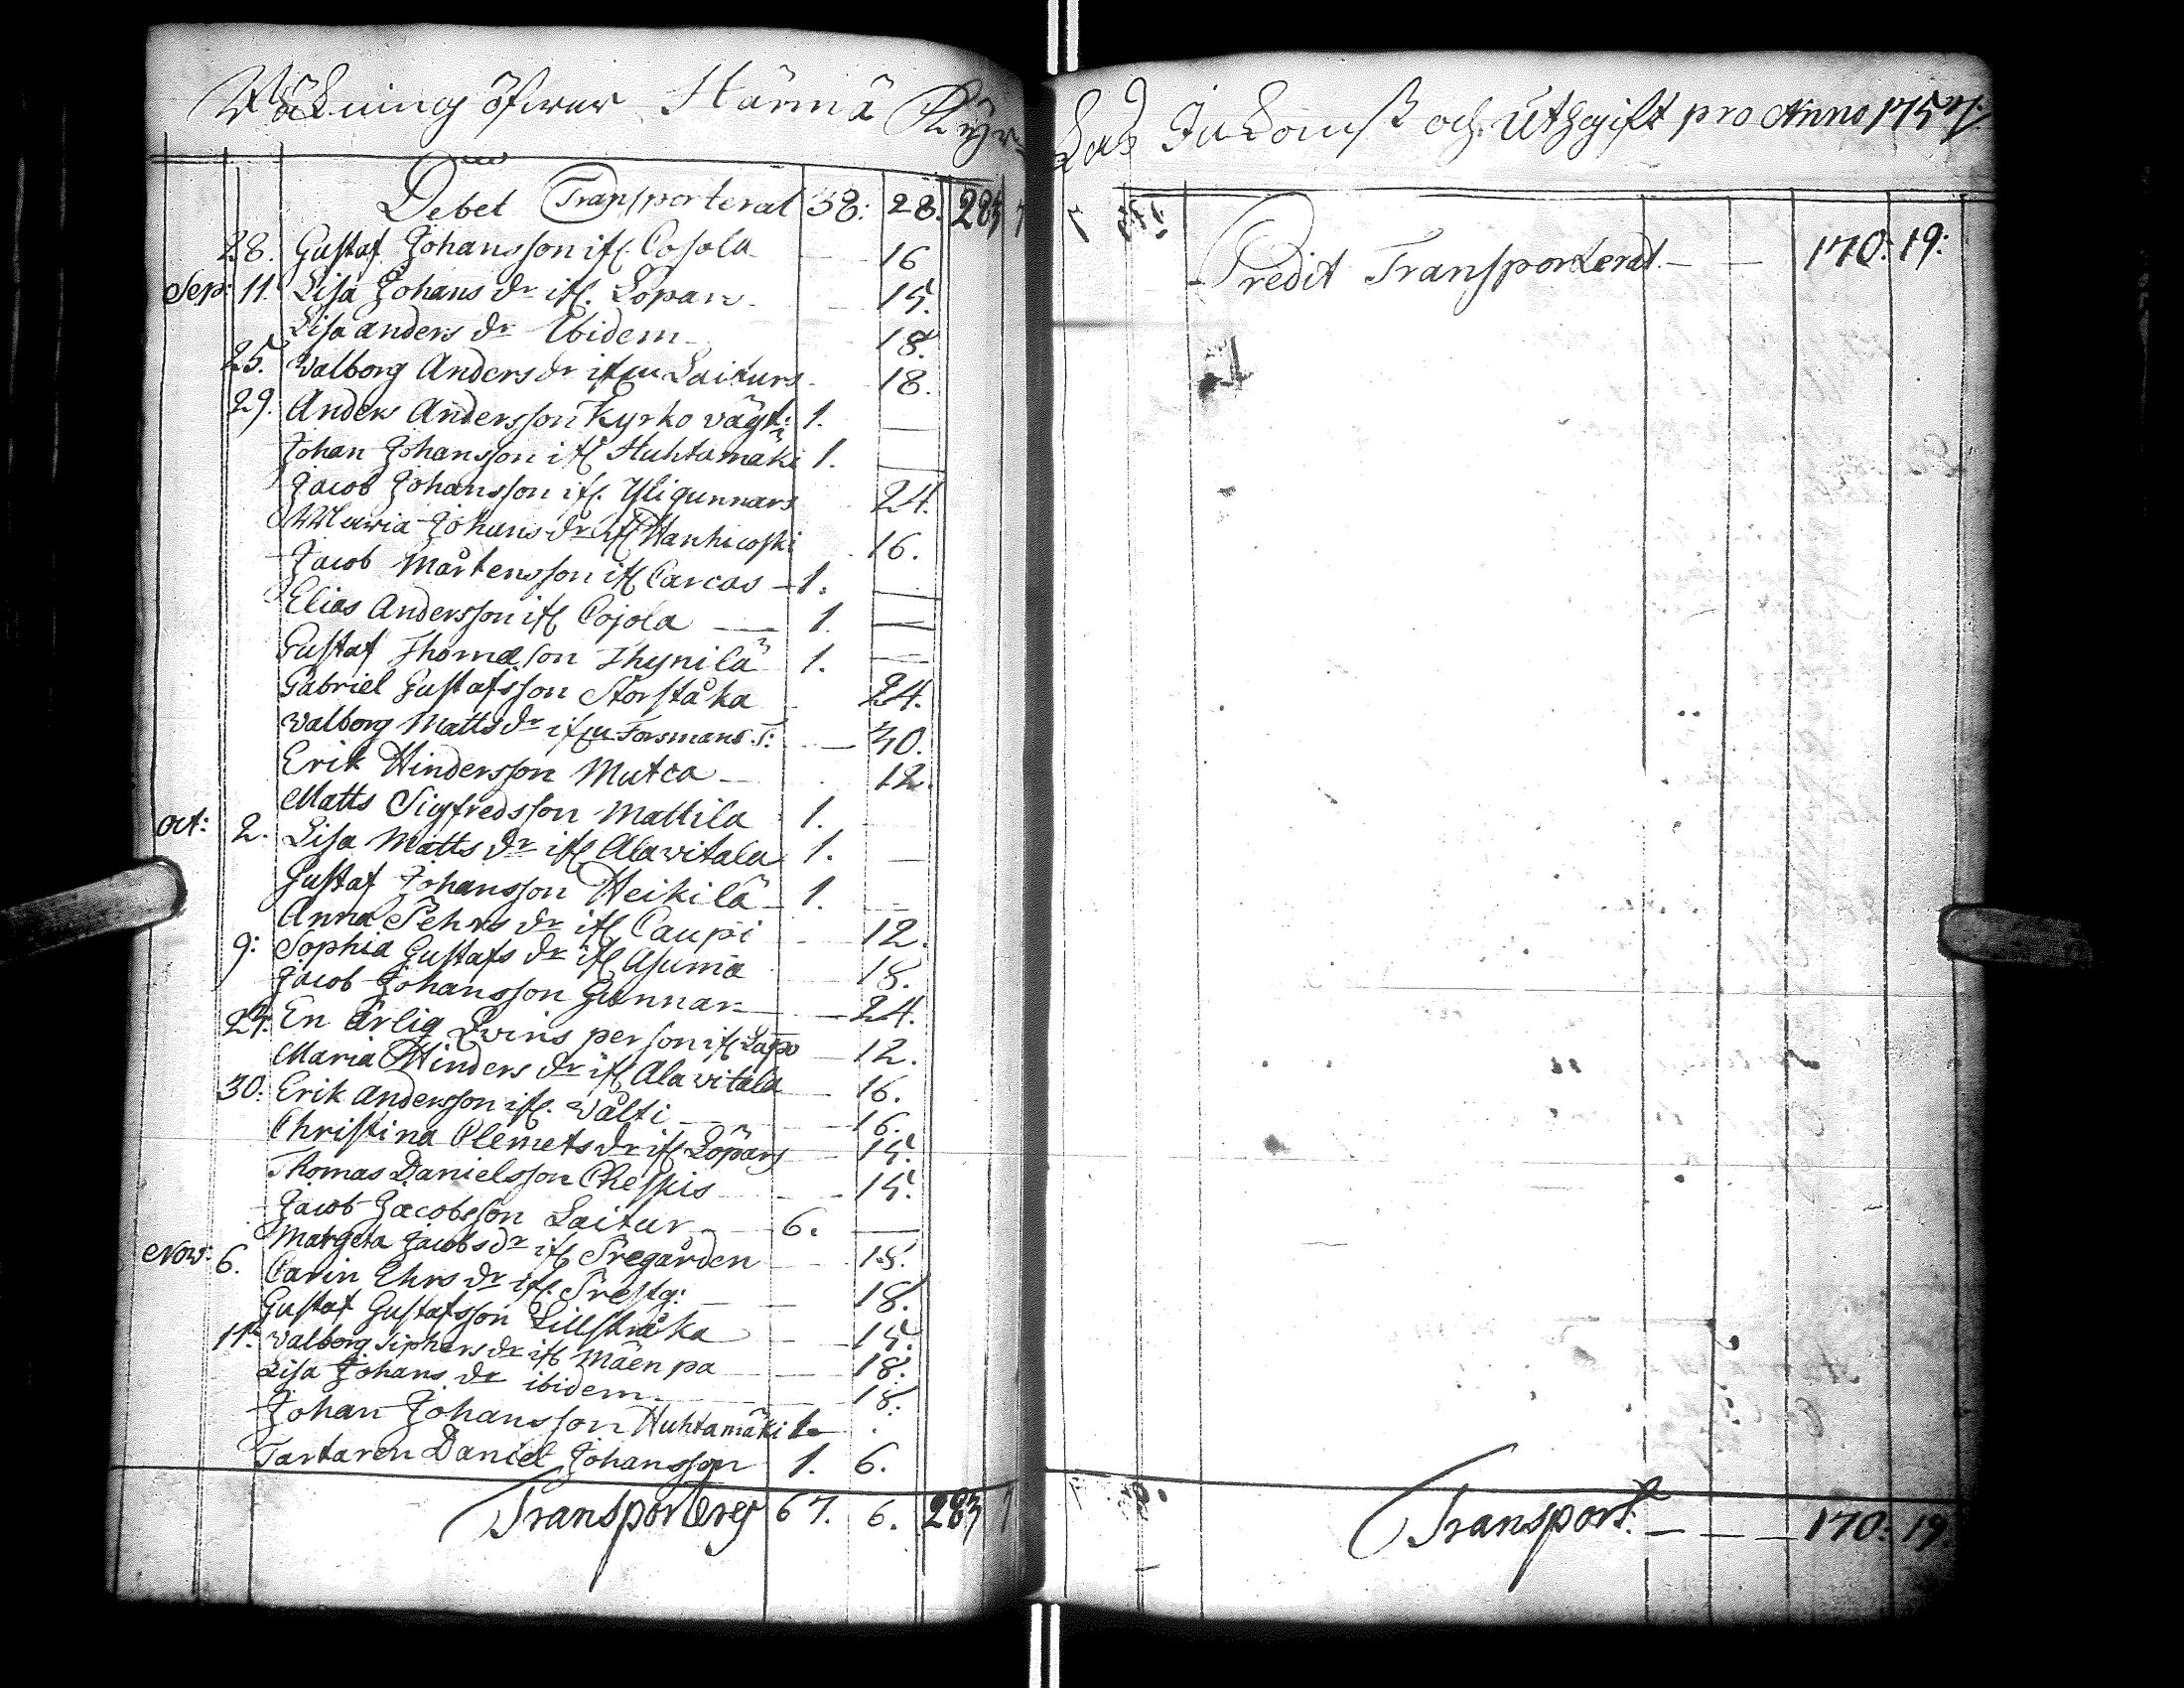 Räkning öfwer Härmä Kyr=
Debet Transporterat 38: 28. 283 7
28. Gustaf Johansson ifl. Cojola 16
Sep: 11. Lisa Johans dr ifl. Löpars 15.
Lisa anders dr Ibidem 18.
25. Walborg Anders dr ifrån Laiturs 18.
29. Anders Andersson Kyrko vägt: 1. —
Johan Johansson ifl Huhtamäki 1. —
Jacob Johansson ifl. Yligunnars 24.
Maria Johans dr ifl Wanhicoski 16.
Jacob Mårtensson ifl Carcas — 1. —
Elias Andersson ifl Cojola — 1. —
Gustaf Thomæson Thynilä 1. —
Gabriel Gustafsson Storstå ka 24.
Walborg Matts dr ifrån Forsmans T: — 30.
Erik Hindersson Mutca — 12.
Matts Sigfredsson Mattila 1.
Oct: 2. Lisa Matts dr ifl Alawitala 1. —
Gustaf Johansson Heikilä 1. —
Anna Pehrs dr ifl Caupi 12.
9: Sophia Gustafs dr ifl Asuma 18.
Jacob Johansson Gunnar — 24.
23: En ärlig Qwins person ifl Lapo — 12.
Maria Hinders dr ifl Alawitala — 16.
30: Erik Andersson ifl. Wälti — 16.
Christina Clemets dr ifl Löpars — 15.
Thomas Danielsson Cheskis — 15.
Jacob Jacobsson Laitur — 6. —
Margeta Jacobs dr ifl Pregården — 18.
Nov: 6. Carin Ehrs dr ifl. Prestg: — 18.
Gustaf Gustafsson Lillstråka — 15.
11. Walborg Siphers dr ifl Mäenpa — 18.
Lisa Johans dr ibidem — 18.
Johan Johansson Huhtamäki 1 —
Tartaren Daniel Johansson 1. 6.
Transporteres 67. 6. 283 7
kas Inkomst och Uthgift pro Anno 1757.
Credit Transporterat — — 170: 19:
Transport: — — — 170: 19.